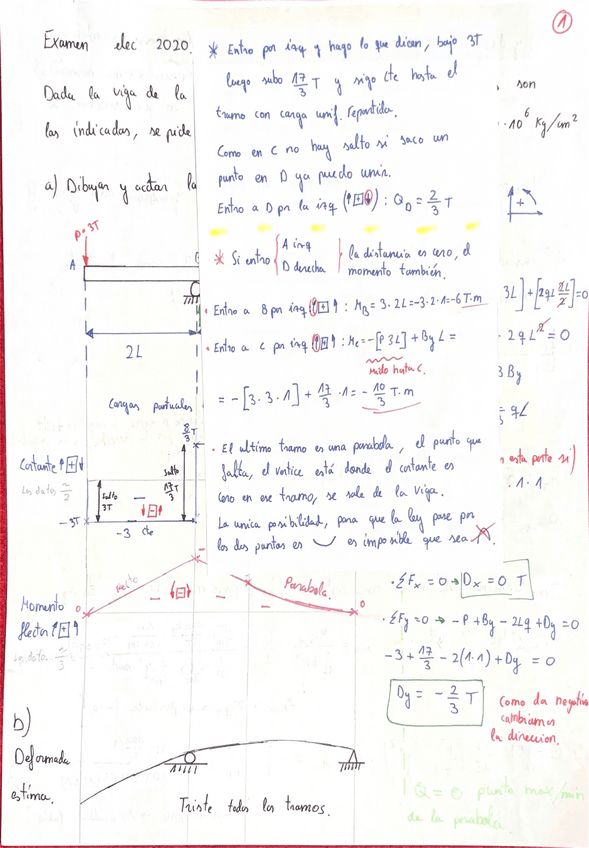 1
Examen elec 2020.
Dada la viga de la
son
las indicadas, se pide
·10⁶ Kg/cm²
a) Dibujar y acotar la
* Entro por izq y hago lo que dicen, bajo 3T
luego subo 17/3 T y sigo cte hasta el
tramo con carga unif. repartida.
Como en C no hay salto si saco un
punto en D ya puedo unir.
Entro a D por la izq (↑+↓) : Q_D = 2/3 T
* Si entro { A izq D derecha } la distancia es cero, el
momento también.
· Entro a B por izq ↑+↑ : M_B = 3·2L = -3·2·1 = -6 T·m
· Entro a C por izq ↑+↑ : M_C = -[P 3L] + By L =
mido hasta C.
= -[3·3·1] + 17/3 ·1 = -10/3 T·m
· El ultimo tramo es una parabola, el punto que
falta, el vertice está donde el cortante es
cero en ese tramo, se sale de la viga.
La unica posibilidad, para que la ley pase por
los dos puntos es ‿ es imposible que sea
+
P=3T
A
2L
3L] + [2qL 2L/2] = 0
· 2qL² = 0
3 By
= qL
esta parte si)
· 1·1
Cargas puntuales
Cortante ↑+↓
8/3 T
salto 3T
salto 17/3 T
-3T
-3 cte
↓-↑
Momento
flector ↑+↑
recto
Parabola.
0
0
↓-↓
·ΣFx = 0 → Dx = 0 T
·ΣFy = 0 → -P + By - 2Lq + Dy = 0
-3 + 17/3 - 2(1·1) + Dy = 0
Dy = -2/3 T
Como da negativo
cambiamos
la direccion.
b)
Deformada
estima.
Triste todos los tramos.
Q = 0 punto max/min
de la parabola.